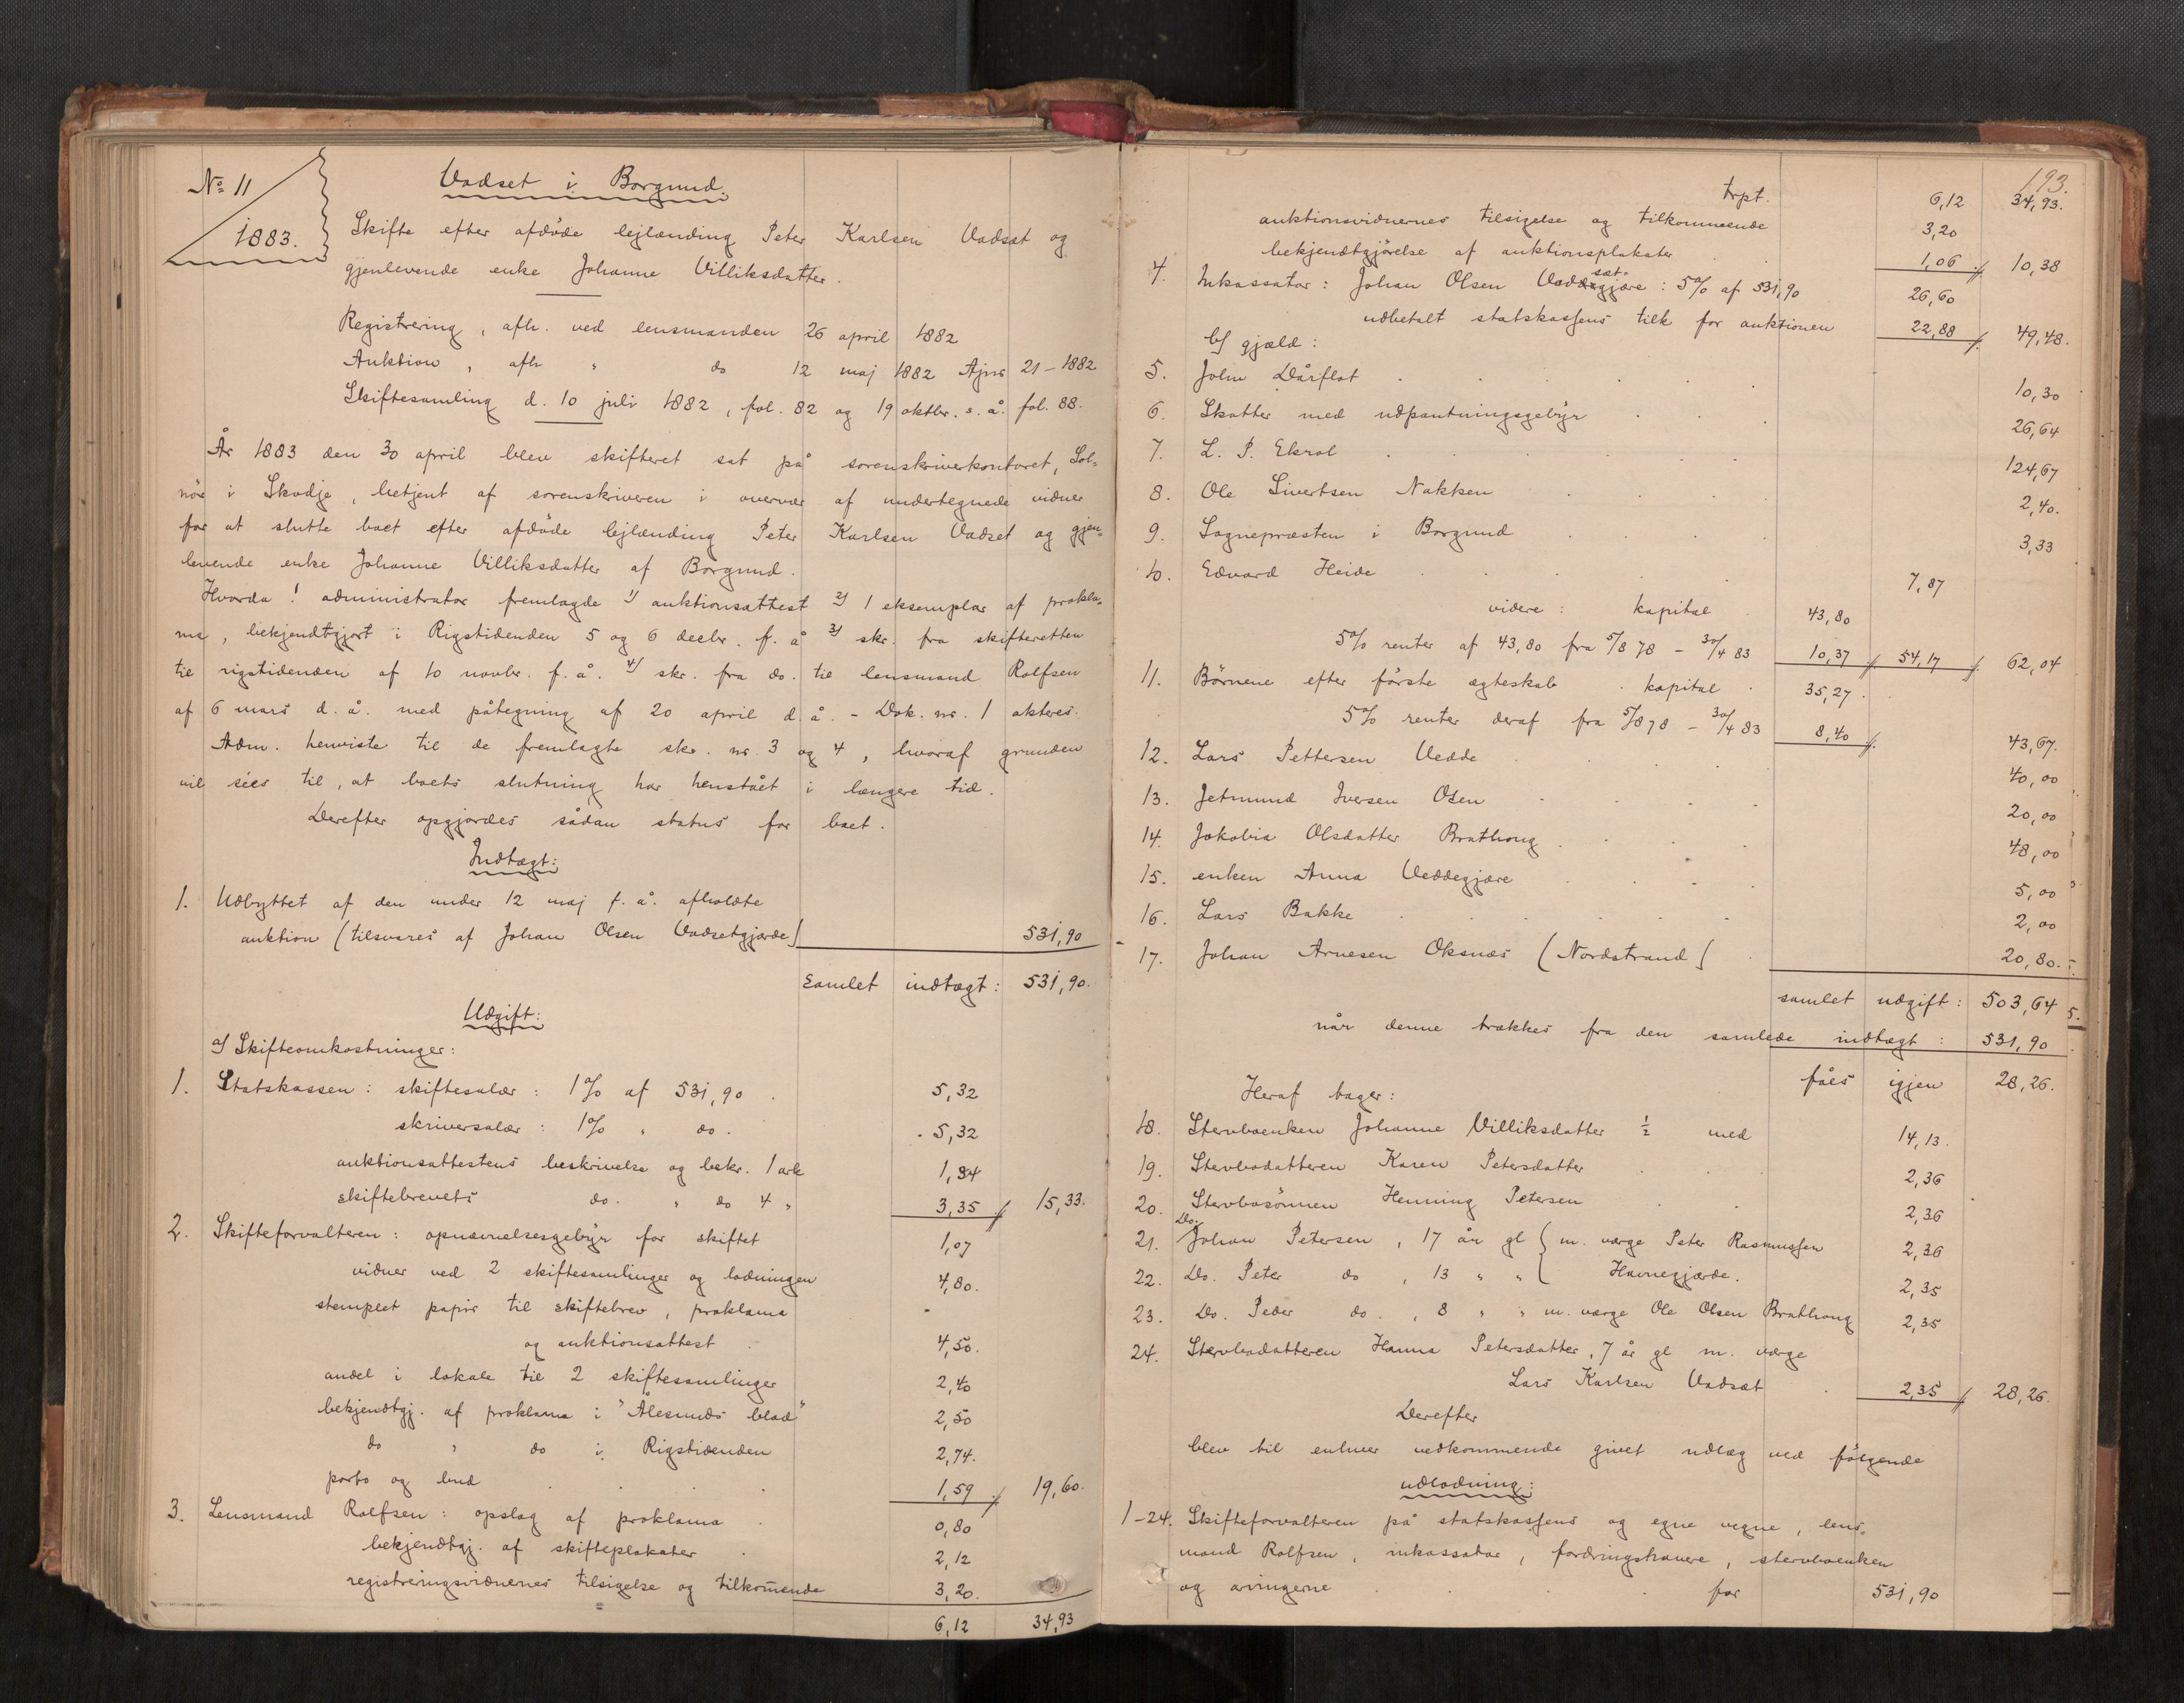 No 11
1883.
Vadset i Borgund.
Skifte efter afdöde lejlænding Peter Karlsen Vadset og
gjenlevende enke Johanne Villiksdatter.
Registrering, afh. ved lensmanden 26 april 1882
Auktion, afh " do 12 maj 1882 Ajnr 21-1882
Skiftesamling d. 10 juli 1882, fol. 82 og 19 oktbr. s. å. fol. 88.
År 1883 den 30 april blev skifteret sat på sorenskriverkontoret, Sol-
nör i Skodje, betjent af sorenskriveren i overvær af undertegnede vidner
for at slutte boet efter afdöde lejlænding Peter Karlsen Vadset og gjen-
levende enke Johanne Villiksdatter af Borgund.
Hvorda! administrator fremlagde 1) auktionsattest 2) 1 eksemplar af prokla-
ma, bekjendtgjort i Rigstidenden 5 og 6 decbr. f. å 3) skr. fra skifteretten
til rigstidenden af 10 novbr. f. å. 4) skr. fra do. til lensmand Rolfsen
af 6 mars d. å. med påtegning af 20 april d. å. - Dok. nr. 1 akteres.
Adm. henviste til de fremlagte skr. nr. 3 og 4, hvoraf grunden
vil sées til, at boets slutning har henstået i længere tid.
Derefter opgjordes sådan status for boet.
Indtægt:
1. Udbyttet af den under 12 maj f. å. afholdte
auktion (tilsvares af Johan Olsen Vadsetgjærde) 531,90
Samlet indtægt: 531,90.
Udgift:
a) Skifteomkostninger:
1. Statskassen: skiftesalær: 1% af 531,90 . 5,32
skriversalær: 1% " do. . 5,32
auktionsattestens beskrivelse og bekr. 1 ark 1,34
skiftebrevets do. " do 4 " 3,35 /. 15,33.
2. Skifteforvalteren: opnævnelsesgebyr for skiftet 1,07
vidner ved 2 skiftesamlinger og lodningen 4,80.
stemplet papir til skiftebrev, proklama
og auktionsattest . 4,50.
andel i lokale til 2 skiftesamlinger 2,40
bekjendtgj. af proklama i "Ålesunds blad" 2,50
do " do i Rigstidenden 2,74.
porto og bud . . . 1,59 /. 19,60.
3. Lensmand Rolfsen: opslag af proklama . 0,80
bekjendtgj. af skifteplakater . 2,12
registreringsvidnernes tilsigelse og tilkommende 3,20.
6,12 34,93
193.
trpt. 6,12 34,93.
auktionsvidnernes tilsigelse og tilkommende 3,20
bekjendtgjörelse af auktionsplakater . . 1,06 /. 10,38
4. Inkassator: Johan Olsen Vadsætgjære: 5% af 531,90 26,60
udbetalt statskassens tilk for auktionen 22,88 /. 49,48.
b) gjæld:
5. John Dårflot . . . . 10,30
6. Skatter med udpantningsgebyr . . 26,64
7. L. P. Ekrol . . . . 124,67
8. Ole Sivertsen Nakken . . . 2,40.
9. Sognepræsten i Borgund . . . 3,33
10. Edvard Heide . . . . 7,87
videre: kapital 43,80
5% renter af 43,80 fra 5/8 78 - 30/4 83 10,37 /. 54,17 /. 62,04
11. Börnene efter förste ægteskab . kapital . 35,27.
5% renter deraf fra 5/8 78 - 30/4 83 8,40 /. 43,67.
12. Lars Pettersen Vedde . . . 40,00
13. Jetmund Iversen Osen . . . . 20,00
14. Jakobia Olsdatter Brathoug . . . . 48,00
15. enken Anna Veddegjære . . . 5,00
16. Lars Bakke . . . . . 2,00
17. Johan Arnesen Oksnæs (Nordstrand) . 20,80.
samlet udgift: 503,64
når denne trækkes fra den samlede indtægt: 531,90
fåes igjen 28,26.
Heraf tager:
18. Stervboenken Johanne Villiksdatter ½ med 14,13.
19. Stervbodatteren Karen Petersdatter . . . 2,36
20. Stervbosönnen Henning Petersen . . 2,36
21. Do. Johan Petersen, 17 år gl ( m. værge Peter Rasmussen 2,36
22. Do. Peter do, 13 " " ( Havnegjærde. 2,35
23. Do. Peder do., 8 " " m. værge Ole Olsen Brathoug 2,35
24. Stervbodatteren Hanna Petersdatter, 7 år gl m. værge
Lars Karlsen Vadsæt . 2,35 /. 28,26.
Derefter
blev til enhver vedkommende givet udlæg ved fölgende
udlodning:
1-24. Skifteforvalteren på statskassens og egne vegne, lens-
mand Rolfsen, inkassator, fordringshavere, stervboenken
og arvingerne . . . for 531,90